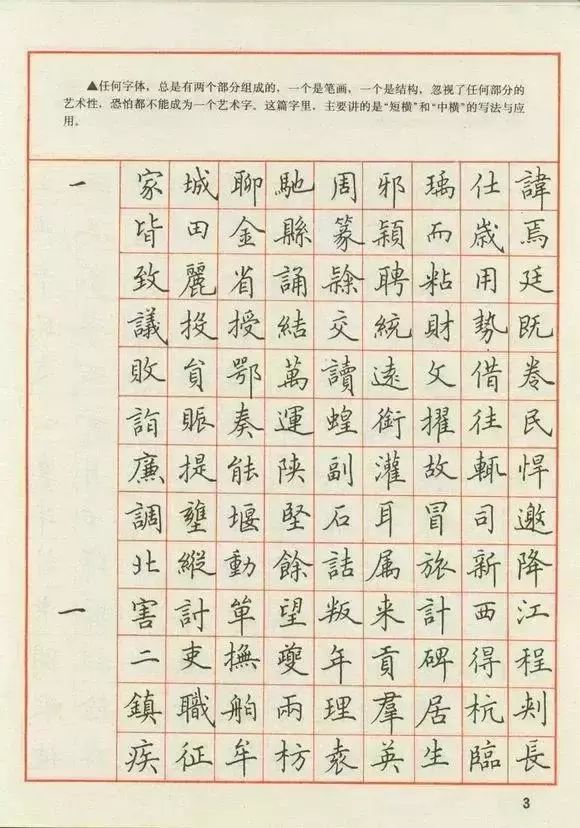 ▲任何字体，总是有两个部分组成的，一个是笔画，一个是结构，忽视了任何部分的
艺术性，恐怕都不能成为一个艺术字。这篇字里，主要讲的是“短横”和“中横”的写法与应
用。
一
家城聊馳周邪瑀仕諱
皆田金縣篆穎而歲焉
致麗省誦聘粘用廷
議投授結交統財勢既
敗貟鄂萬讀遠文借卷
詣賑奏運蝗銜擢往民
廉提能陝副灌故輒悍
調壅堰堅石耳冒司邀
北縱動餘詰属旅新降
一
害討望叛来計西江
二吏撫夔年貢碑得程
鎮職舶兩理羣居杭刾
疾征牟枋袁英生臨長
3